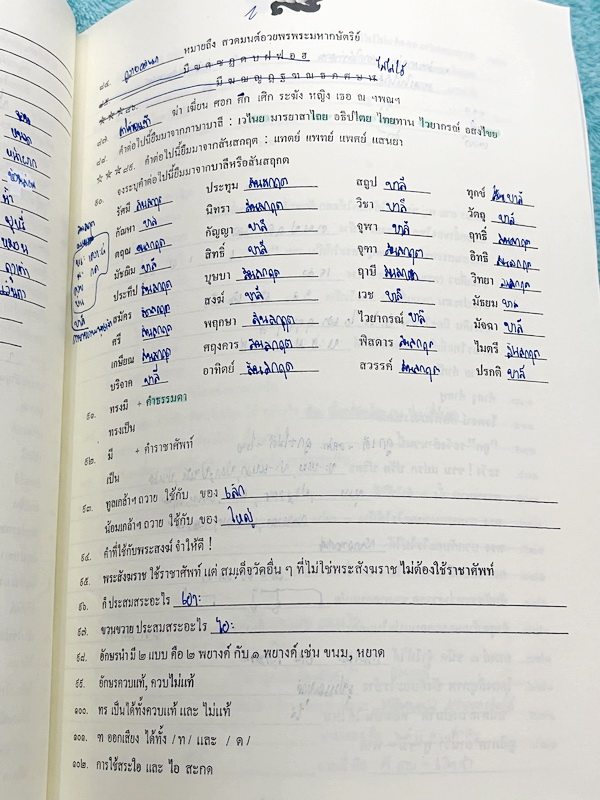 ๘๔. ถวายอดิเรก หมายถึง สวดมนต์อวยพรพระมหากษัตริย์
มี ข ฅ ซ ฏ ด บ ฝ ฟ อ ฮ ไม่ใช้
☆☆☆๘๖.
๘๗. ฆ่า เฆี่ยน ศอก ศึก เศิก ระฆัง หญิง เธอ ณ ฯพณฯ
คำต่อไปนี้ยืมมาจากภาษาบาลี : เวไนย มารยาสาไถย อธิปไตย ไทยทาน ไวยากรณ์ อสงไขย
☆☆☆๘๙. คำต่อไปนี้ยืมมาจากสันสกฤต : แทตย์ แพทย์ แพศย์ แสนยา
๙๐. จงระบุคำต่อไปนี้ยืมมาจากบาลีหรือสันสฤกต
รัศมี สันสกฤต ประทุม สันสกฤต สถูป บาลี ทุกข์ บาลี
กัณหา บาลี นิทรา สันสกฤต วิชา บาลี วัตถุ บาลี
ดรุณ สันสกฤต กัญญา บาลี จุฬา บาลี ฤทธิ์ สันสกฤต
มัชฌิม บาลี สิทธิ์ บาลี จุฑา สันสกฤต อิทธิ สันสกฤต
ประทีป สันสกฤต บุษบา สันสกฤต ฤาษี สันสกฤต วิทยา สันสกฤต
สมัคร สันสกฤต สงฆ์ บาลี เวช บาลี มัธยม บาลี
ศรี สันสกฤต พฤกษา สันสกฤต ไวยากรณ์ บาลี มัจฉา บาลี
เกษียณ สันสกฤต ศฤงคาร สันสกฤต พิสดาร สันสกฤต ไมตรี สันสกฤต
บริจาค บาลี อาทิตย์ สันสกฤต สวรรค์ สันสกฤต ปรกติ บาลี
๙๑. ทรงมี + คำธรรมดา
ทรงเป็น
๙๒. มี + คำราชาศัพท์
เป็น
๙๓. ทูลเกล้าฯ ถวาย ใช้กับ ของ เล็ก
น้อมเกล้าฯ ถวาย ใช้กับ ของ ใหญ่
๙๔. คำที่ใช้กับพระสงฆ์ จำให้ดี !
๙๕. พระสังฆราช ใช้ราชาศัพท์ แต่ สมเด็จวัดอื่น ๆ ที่ไม่ใช่พระสังฆราช ไม่ต้องใช้ราชาศัพท์
๙๖. ก็ ประสมสระอะไร เอาะ
๙๗. ขวนขวาย ประสมสระอะไร ไอ
๙๘. อักษรนำ มี ๒ แบบ คือ ๒ พยางค์ กับ ๑ พยางค์ เช่น ขนม, หยาด
๙๙. อักษรควบแท้, ควบไม่แท้
๑๐๐. ทร เป็นได้ทั้งควบแท้ และ ไม่แท้
๑๐๑. ฑ ออกเสียง ได้ทั้ง / ท / และ / ด /
๑๐๒. การใช้สระใอ และ ไอ สะกด